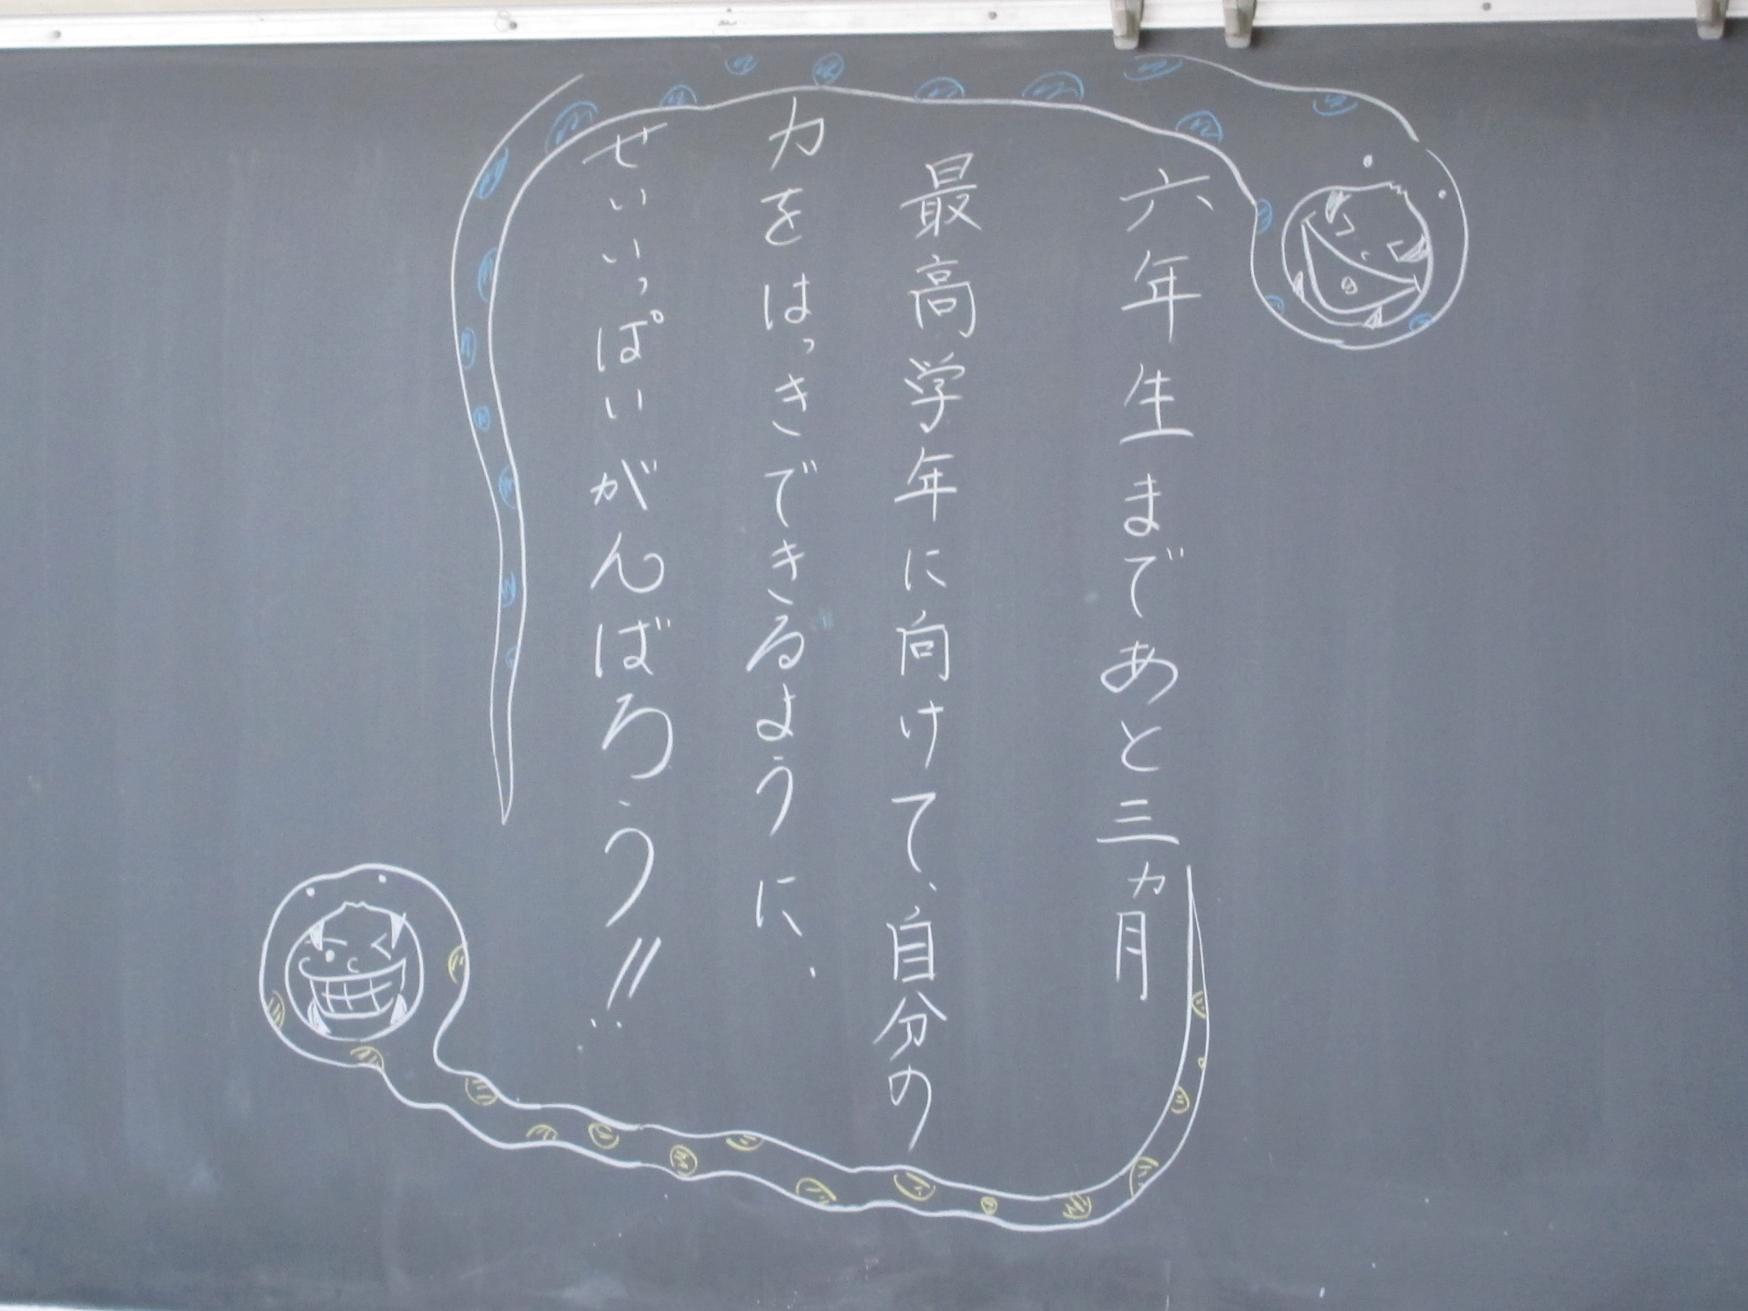 六年生まであと三カ月
最高学年に向けて、自分の
力をはっきできるように、
せいいっぱいがんばろう!!